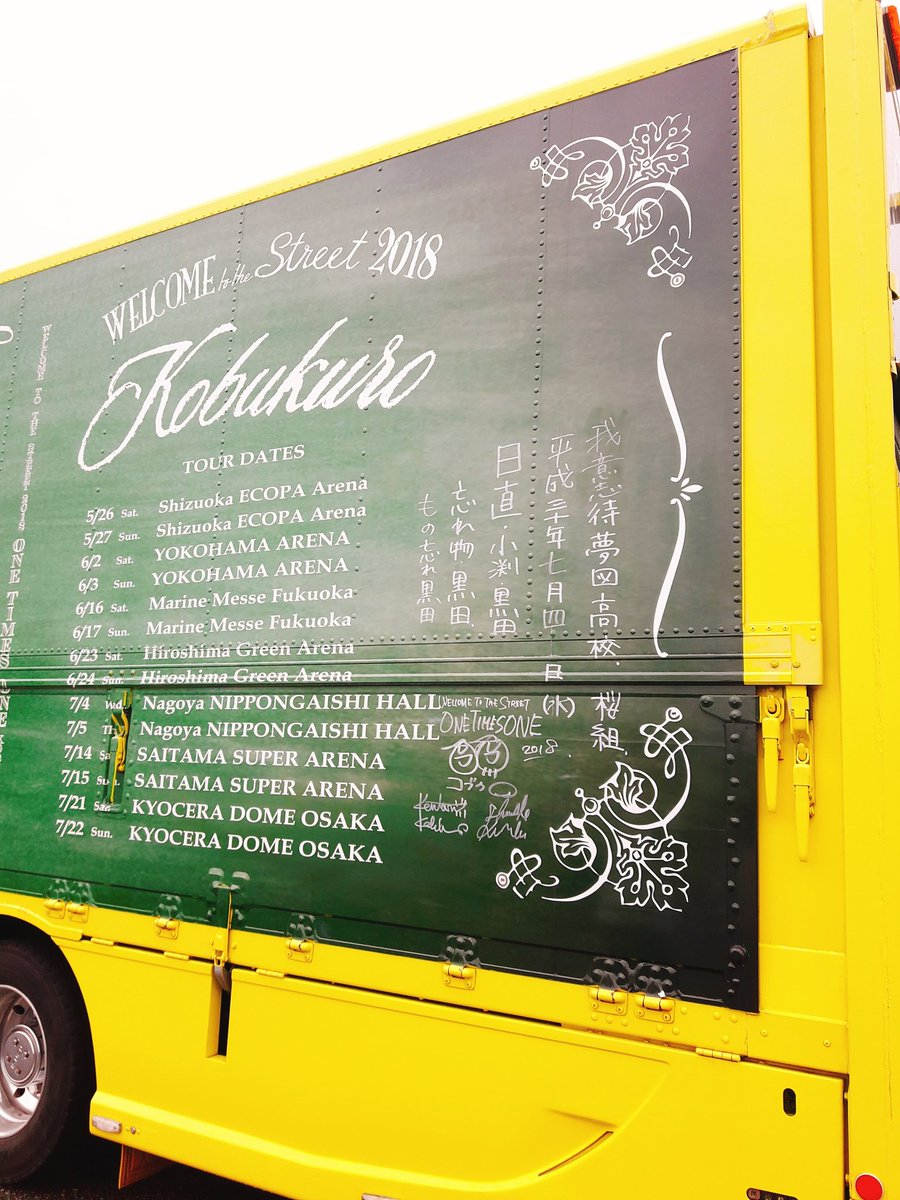 WELCOME to the Street 2018
Kobukuro
TOUR DATES
5/26 Sat. Shizuoka ECOPA Arena
5/27 Sun. Shizuoka ECOPA Arena
6/2 Sat. YOKOHAMA ARENA
6/3 Sun. YOKOHAMA ARENA
6/16 Sat. Marine Messe Fukuoka
6/17 Sun. Marine Messe Fukuoka
6/23 Sat. Hiroshima Green Arena
6/24 Sun. Hiroshima Green Arena
7/4 Wed. Nagoya NIPPONGAISHI HALL
7/5 Nagoya NIPPONGAISHI HALL
7/14 SAITAMA SUPER ARENA
7/15 Sun. SAITAMA SUPER ARENA
7/21 Sat. KYOCERA DOME OSAKA
7/22 Sun. KYOCERA DOME OSAKA
我意志待夢図高校. 桜組.
平成三十年七月四日(水)
日直・小渕・黒田
忘れ物・黒田.
もの忘れ黒田
WELCOME TO THE STREET
ONE TIMES ONE
2018.
コブクロ
ONE TIMES ONE